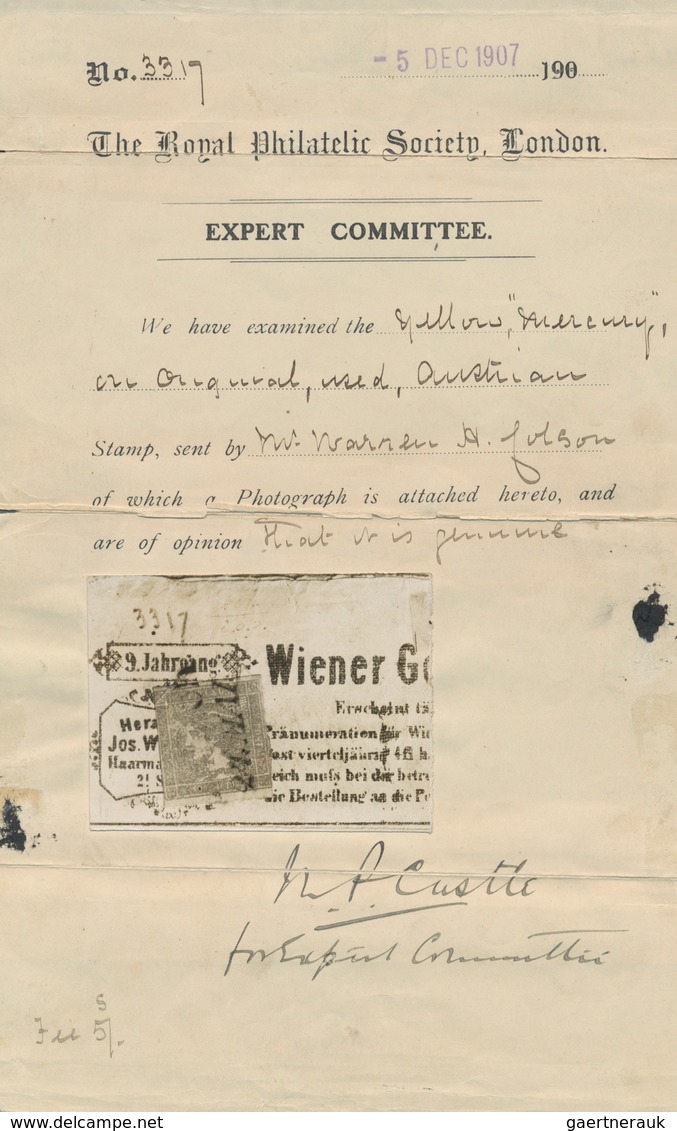 No. 3317
- 5 DEC 1907 190
The Royal Philatelic Society, London.
EXPERT COMMITTEE.
We have examined the Yellow, "Mercury",
on Original, used, Austrian
Stamp, sent by Mr. Warren H. Colson
of which a Photograph is attached hereto, and
are of opinion that it is genuine
3317
9. Jahrgang
Wiener Ge
Erscheint tä
Hera
Pränumeration für Wie
Jos. W
vierteljährig 4fl
Haarma
muß bei der betre
2!
Bestellung an die Po
M. P. Castle
for Expert Committee
s
Fee 5/.
www.delcampe.net
gaertnerauk